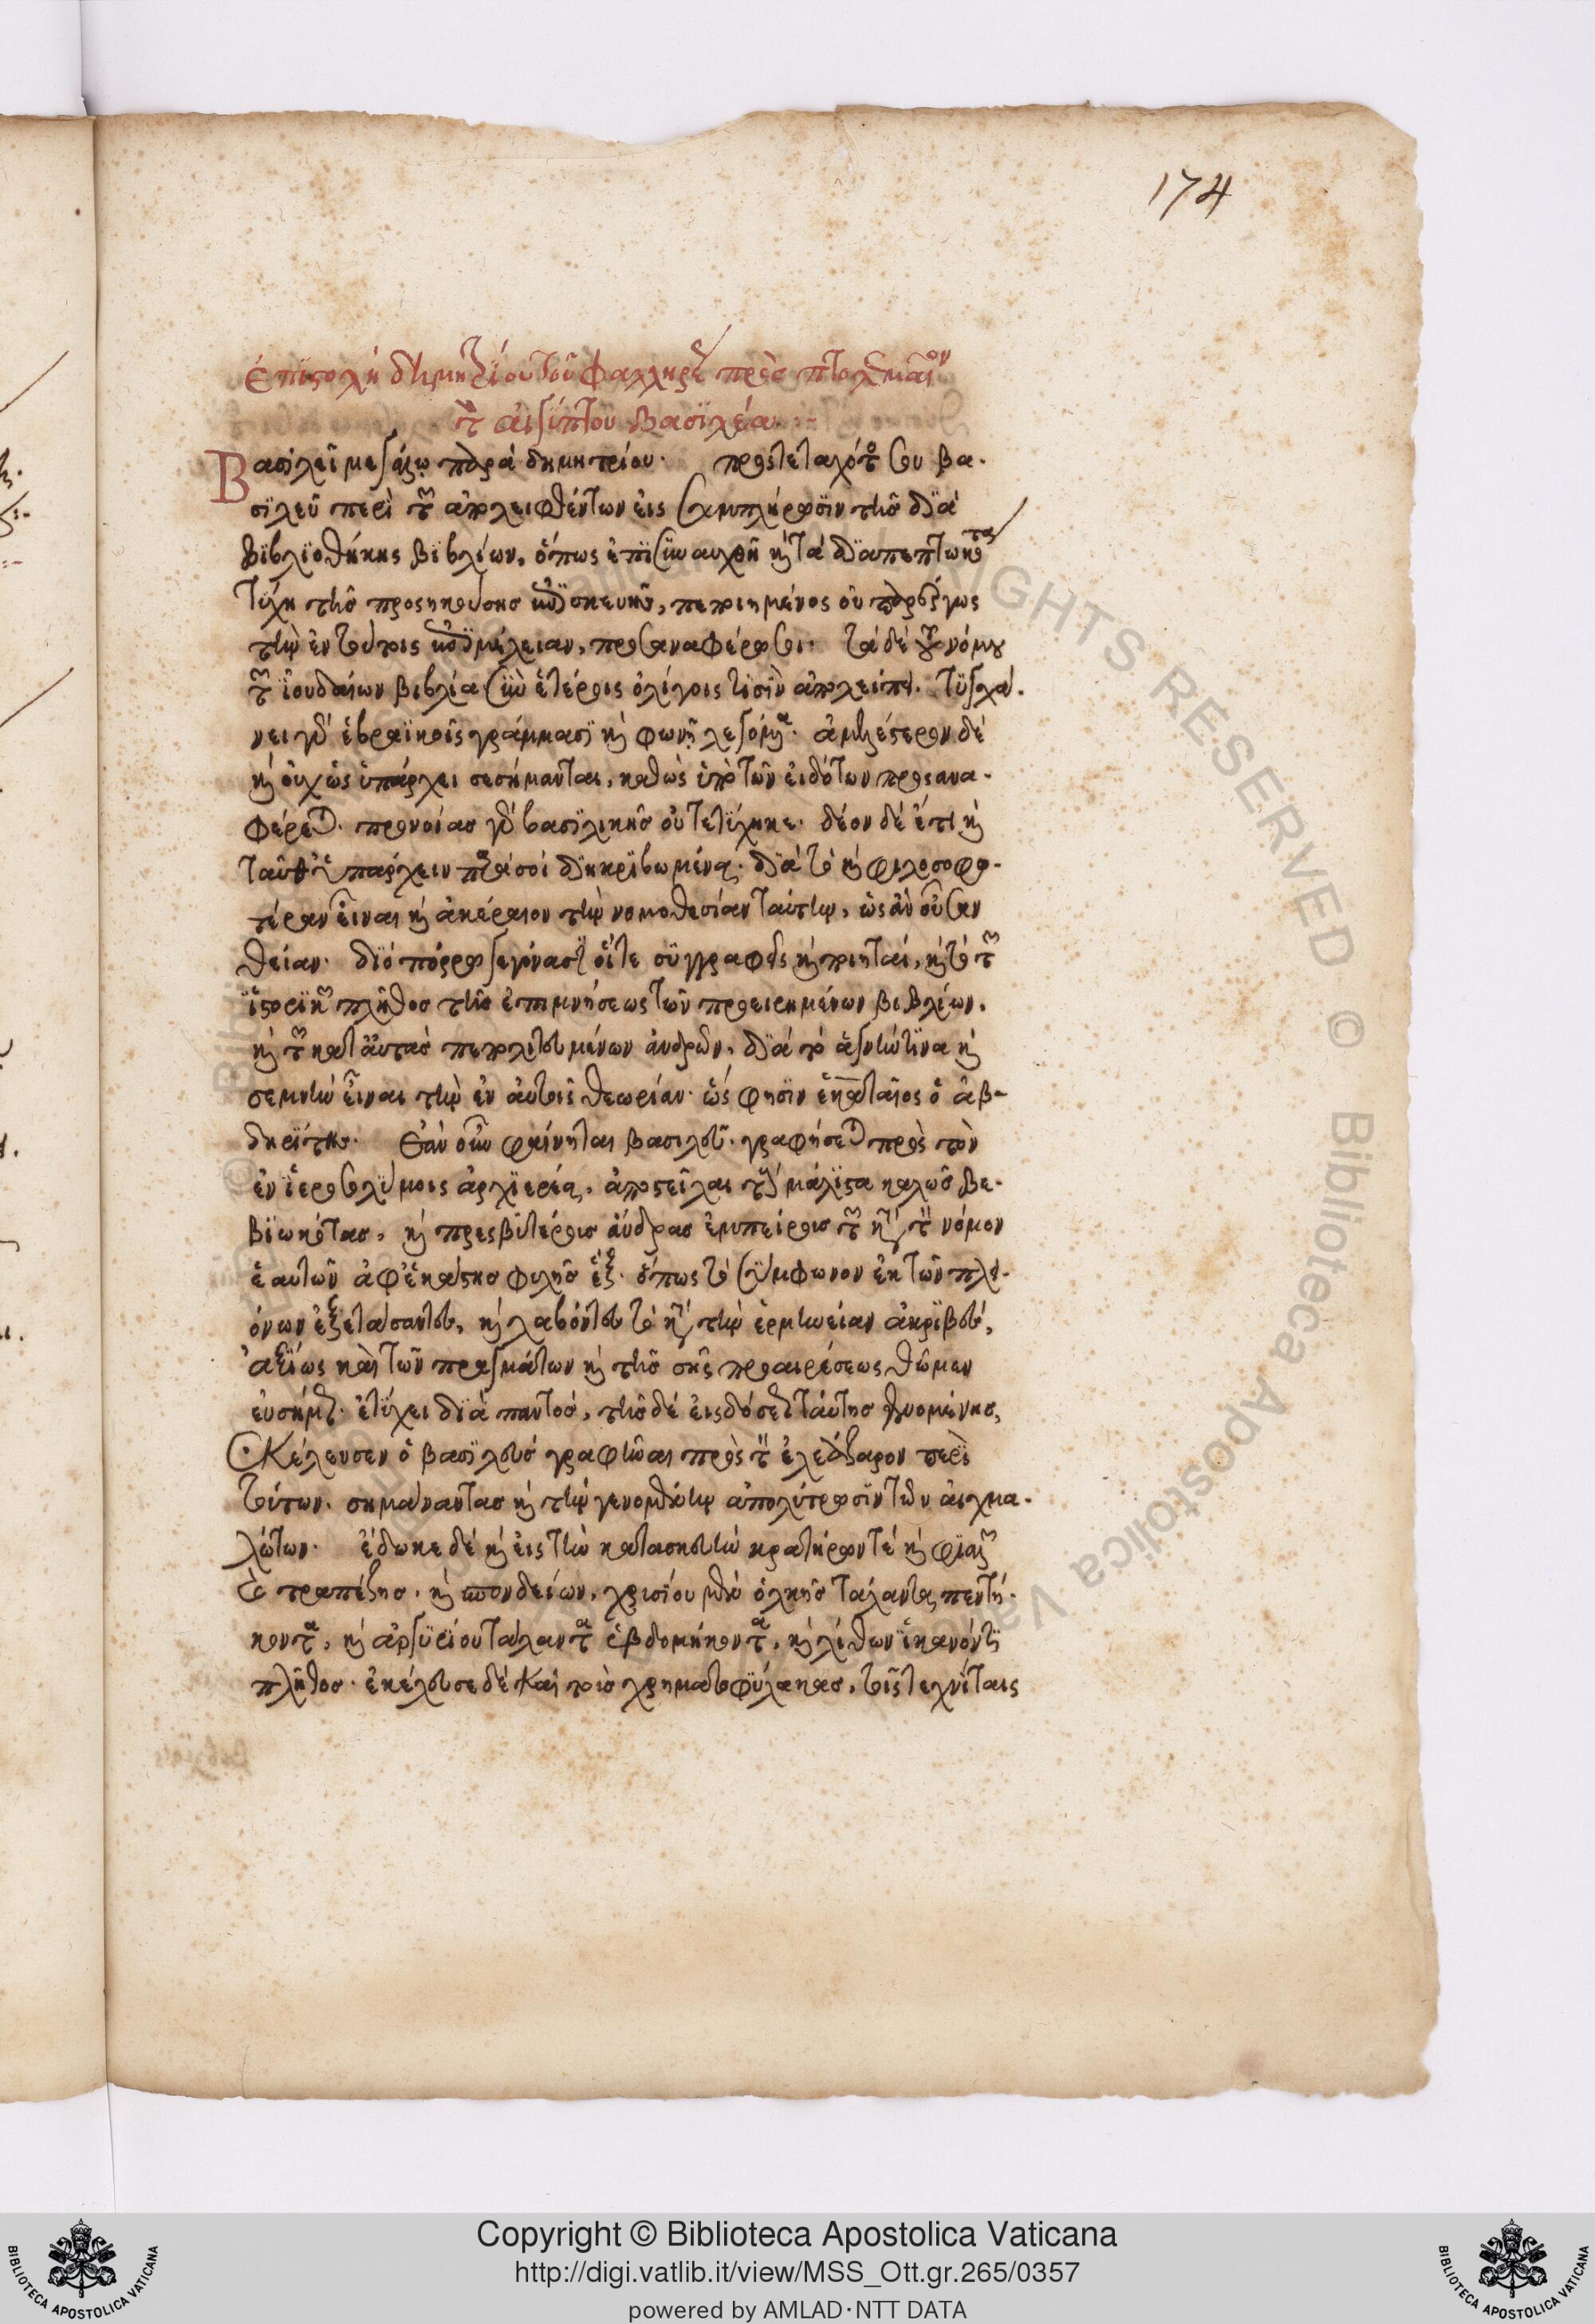 174
ἐπιστολὴ δημητρίου τοῦ φαλληρέως πρὸς πτολεμαῖον
τὸν αἰγύπτου βασιλέα :~
Βασιλεῖ μεγάλω παρὰ δημητρίου· προστεταχότος σου βα-
σιλεῦ περὶ τῶν ἀπολειφθέντων εἰς συμπλήρωσιν τῆς διὰ
βιβλιοθήκης βιβλίων, ὅπως ἐπισυναχθῆ καὶ τὰ διαπεπτωκότα
τύχη τῆς προσηκούσης ἐπισκευῆς, πεποιημένος οὐ παρέργως
τὴν ἐν τούτοις ἐπιμέλειαν, προσαναφέρω σοι· τὰ δὲ τοῦ νόμου
τῶν ἰουδαίων βιβλία σὺν ἑτέροις ὀλίγοις τισὶν ἀπολείπει. τυγχά-
νει γὰρ ἑβραϊκοῖς γράμμασι καὶ φωνῇ λεγόμενα· ἀμελέστερον δὲ
καὶ οὐχ ὡς ὑπάρχει σεσήμανται, καθὼς ὑπὸ τῶν εἰδότων προσανα-
φέρεται· προνοίας γὰρ βασιλικῆς οὐ τετύχηκε· δέον δέ ἐστι καὶ
ταῦθ' ὑπάρχειν παρά σοι διηκριβωμένα· διὰ τὸ καὶ φιλοσοφο-
τέραν εἶναι καὶ ἀκέραιον τὴν νομοθεσίαν ταύτην, ὡς ἂν οὖσαν
θείαν· διὸ πόρρω γεγόνασιν οἵ τε συγγραφεῖς καὶ ποιηταὶ, καὶ τὸ τῶν
ἱστορικῶν πλῆθος τῆς ἐπιμνήσεως τῶν προειρημένων βιβλίων,
καὶ τῶν κατ' αὐτὰς πεπολιτευμένων ἀνδρῶν, διὰ τὸ ἁγνήν τινα καὶ
σεμνὴν εἶναι τὴν ἐν αὐτοῖς θεωρίαν· ὥς φησιν ἑκαταῖος ὁ ἀβ-
δηρίτης· Ἐὰν οὖν φαίνηται βασιλεῦ· γραφήσεται πρὸς τὸν
ἐν ἱεροσολύμοις ἀρχιερέα, ἀποστεῖλαι τοὺς μάλιστα καλῶς βε-
βιωκότας, καὶ πρεσβυτέρους ἄνδρας ἐμπείρους τῶν κατὰ τὸν νόμον
ἑαυτῶν ἀφ' ἑκάστης φυλῆς ἕξ· ὅπως τὸ σύμφωνον ἐκ τῶν πλει-
όνων ἐξετάσαντες, καὶ λαβόντες τὸ κατὰ τὴν ἑρμηνείαν ἀκριβὲς,
ἀξίως καὶ τῶν πραγμάτων καὶ τῆς σῆς προαιρέσεως θῶμεν
εὐσήμως· εὐτύχει διὰ παντός, τῆς δὲ εἰσδόσεως ταύτης γενομένης,
ἐκέλευσεν ὁ βασιλεὺς γραφῆναι πρὸς τὸν ἐλεάζαρον περὶ
τούτων· σημάναντας καὶ τὴν γενομένην ἀπολύτρωσιν τῶν αἰχμα-
λώτων· ἔδωκε δὲ καὶ εἰς τὴν κατασκευὴν κρατήρων τὲ καὶ φιαλῶν
καὶ τραπέζης, καὶ σπονδείων, χρυσίου μὲν ὁλκῆς τάλαντα πεντή-
κοντα, καὶ ἀργυρίου τάλαντα ἑβδομήκοντα, καὶ λίθων ἱκανόν τι
πλῆθος· ἐκέλευσε δὲ καὶ τοὺς χρηματοφύλακας, τοῖς τεχνίταις
Copyright © Biblioteca Apostolica Vaticana
http://digi.vatlib.it/view/MSS_Ott.gr.265/0357
powered by AMLAD·NTT DATA